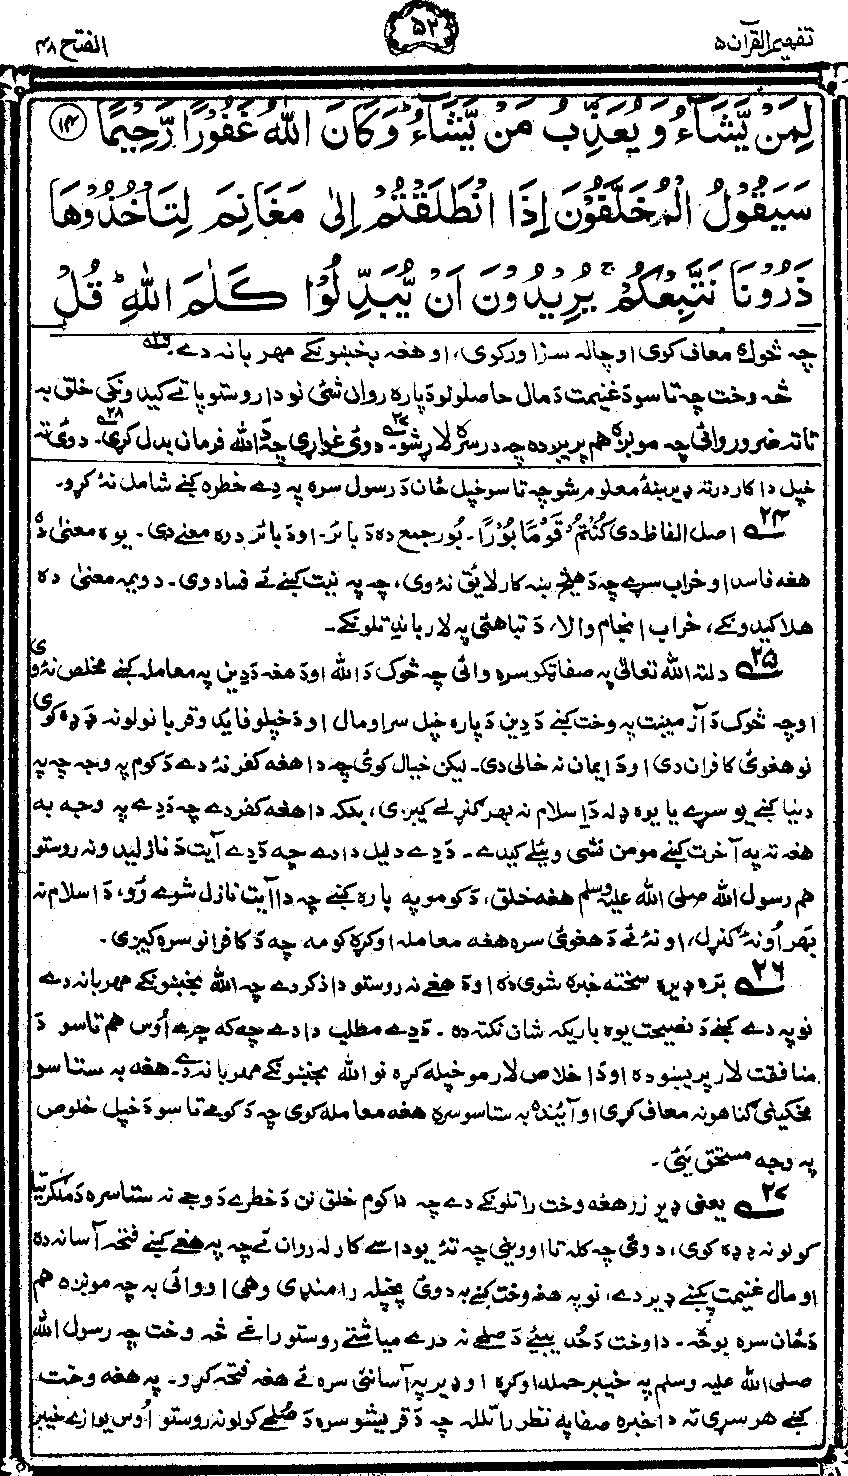 تفهيم القرآن ۵
۵۲
الفتح ۴۸
لِمَنْ يَّشَآءُ وَيُعَذِّبُ مَنْ يَّشَآءُ ؕ وَكَانَ اللّٰهُ غَفُوْرًا رَّحِيْمًا ۝۱۴
سَيَقُوْلُ الْمُخَلَّفُوْنَ اِذَا انْطَلَقْتُمْ اِلٰى مَغَانِمَ لِتَاْخُذُوْهَا
ذَرُوْنَا نَتَّبِعْكُمْ ۚ يُرِيْدُوْنَ اَنْ يُّبَدِّلُوْا كَلٰمَ اللّٰهِ ؕ قُلْ
چه څوك معاف كوى او چاله سزا وركوى، او هغه بخښونكے مهربانه دے۔ ۲۶
څه وخت چه تاسو دَ غنيمت دَ مال حاصلولو دَپاره روان شئ نو دا روستو پاتے كيدونكى خلق به
تاته ضرور وائى چه مونږه هم پريږده چه در سره لاړ شو۔ ۲۷ دوئ غواړى چه دَ الله فرمان بدل كړى۔ ۲۸ دوئ ته
خپل دا كار درته ډير ښۀ معلوم شو چه تاسو خپل ځان دَ رسول سره په دے خطره كښے شامل نۀ كړو۔
۲۴ اصل الفاظ دى كُنْتُمْ قَوْمًا بُوْرًا۔ بُور جمع ده دَ بائر۔ او دَ بائر دوه معنے دى۔ يوه معنىٰ دَه
هغه فاسد او خراب سړے چه دَ هيڅ ښه كار لايق نۀ وى، چه په نيت كښے ئے فساد وى۔ دويمه معنىٰ ده
هلاكيدونكے، خراب انجام والا، دَ تباهئ په لار باندِ تلونكے۔
۲۵ دلته الله تعالىٰ په صفا ټكو سره وائى چه څوك دَ الله او دَ هغه دَ دين په معامله كښے مخلص نۀ وى
او چه څوك دَ آزمينت په وخت كښے دَ دين دَ پاره خپل سر او مال او دَ خپلو فايدو قربانولو نه ډډه كوى
نو هغوئ كافران دى او دَ ايمان نه خالى دى۔ ليكن خيال كوئ چه دا هغه كفر نۀ دے دَ كوم په وجه چه په
دنيا كښے يو سړے يا يوه ډله دَ اسلام نه بهر ګنړلے كيږى، بلكه دا هغه كفر دے چه دَ دے په وجه به
هغه ته په آخرت كښے مومن نشى وئيلے كيدے۔ دَ دے دليل دا دے چه دَ دے آيت دَ نازليدو نه روستو
هم رسول الله صلى الله عليه وسلم هغه خلق، دَ كومو په باره كښے چه دا آيت نازل شوے وُو، دَ اسلام نه
بهر اُو نۀ ګنړل، او نۀ ئے دَ هغوئ سره هغه معامله اوكړه كومه چه دَ كافرانو سره كيږى۔
۲۶ بره ډيره سخته خبره شوى ده او دَ هغے نه روستو دا ذكر دے چه الله بخښونكے مهربانه دے
نو په دے كښے دَ نصيحت يوه باريكه شان نكته ده۔ دَ دے مطلب دا دے چه كه چرے اُوس هم تاسو دَ
منافقت لار پريښوده او دَ اخلاص لار مو خپله كړه نو الله بخښونكے مهربانه دے۔ هغه به ستاسو
مخكينى ګناهونه معاف كړى او آئنده به ستاسو سره هغه معامله كوى چه دَ كومے تاسو دَ خپل خلوص
په وجه مستحق يئ۔
۲۷ يعنى ډير زر هغه وخت راتلونكے دے چه دا كوم خلق نن دَ خطرے دَ وجے نه ستا سره دَ ملګرتيا
كولو نه ډډه كوى، دوئ چه كله تا اووينى چه تۀ يو داسے كار له روان ئے چه په هغے كښے فتحه آسانه ده
او مال غنيمت پكښے ډير دے، نو په هغه وخت كښے به دوئ پخپله رامنډے وهى او وائى به چه مونږه هم
دَ ځان سره بوځه۔ دا وخت دَ حُديبيے دَ صلحے نه درے مياشتے روستو راغے څه وخت چه رسول الله
صلى الله عليه وسلم په خيبر حمله اوكړه او ډير په آسانئ سره ئے هغه فتحه كړو۔ په هغه وخت
كښے هر سړى ته دا خبره صفا په نظر راتلله چه دَ قريشو سره دَ صُلحے كولو نه روستو اُوس يوازے خيبر